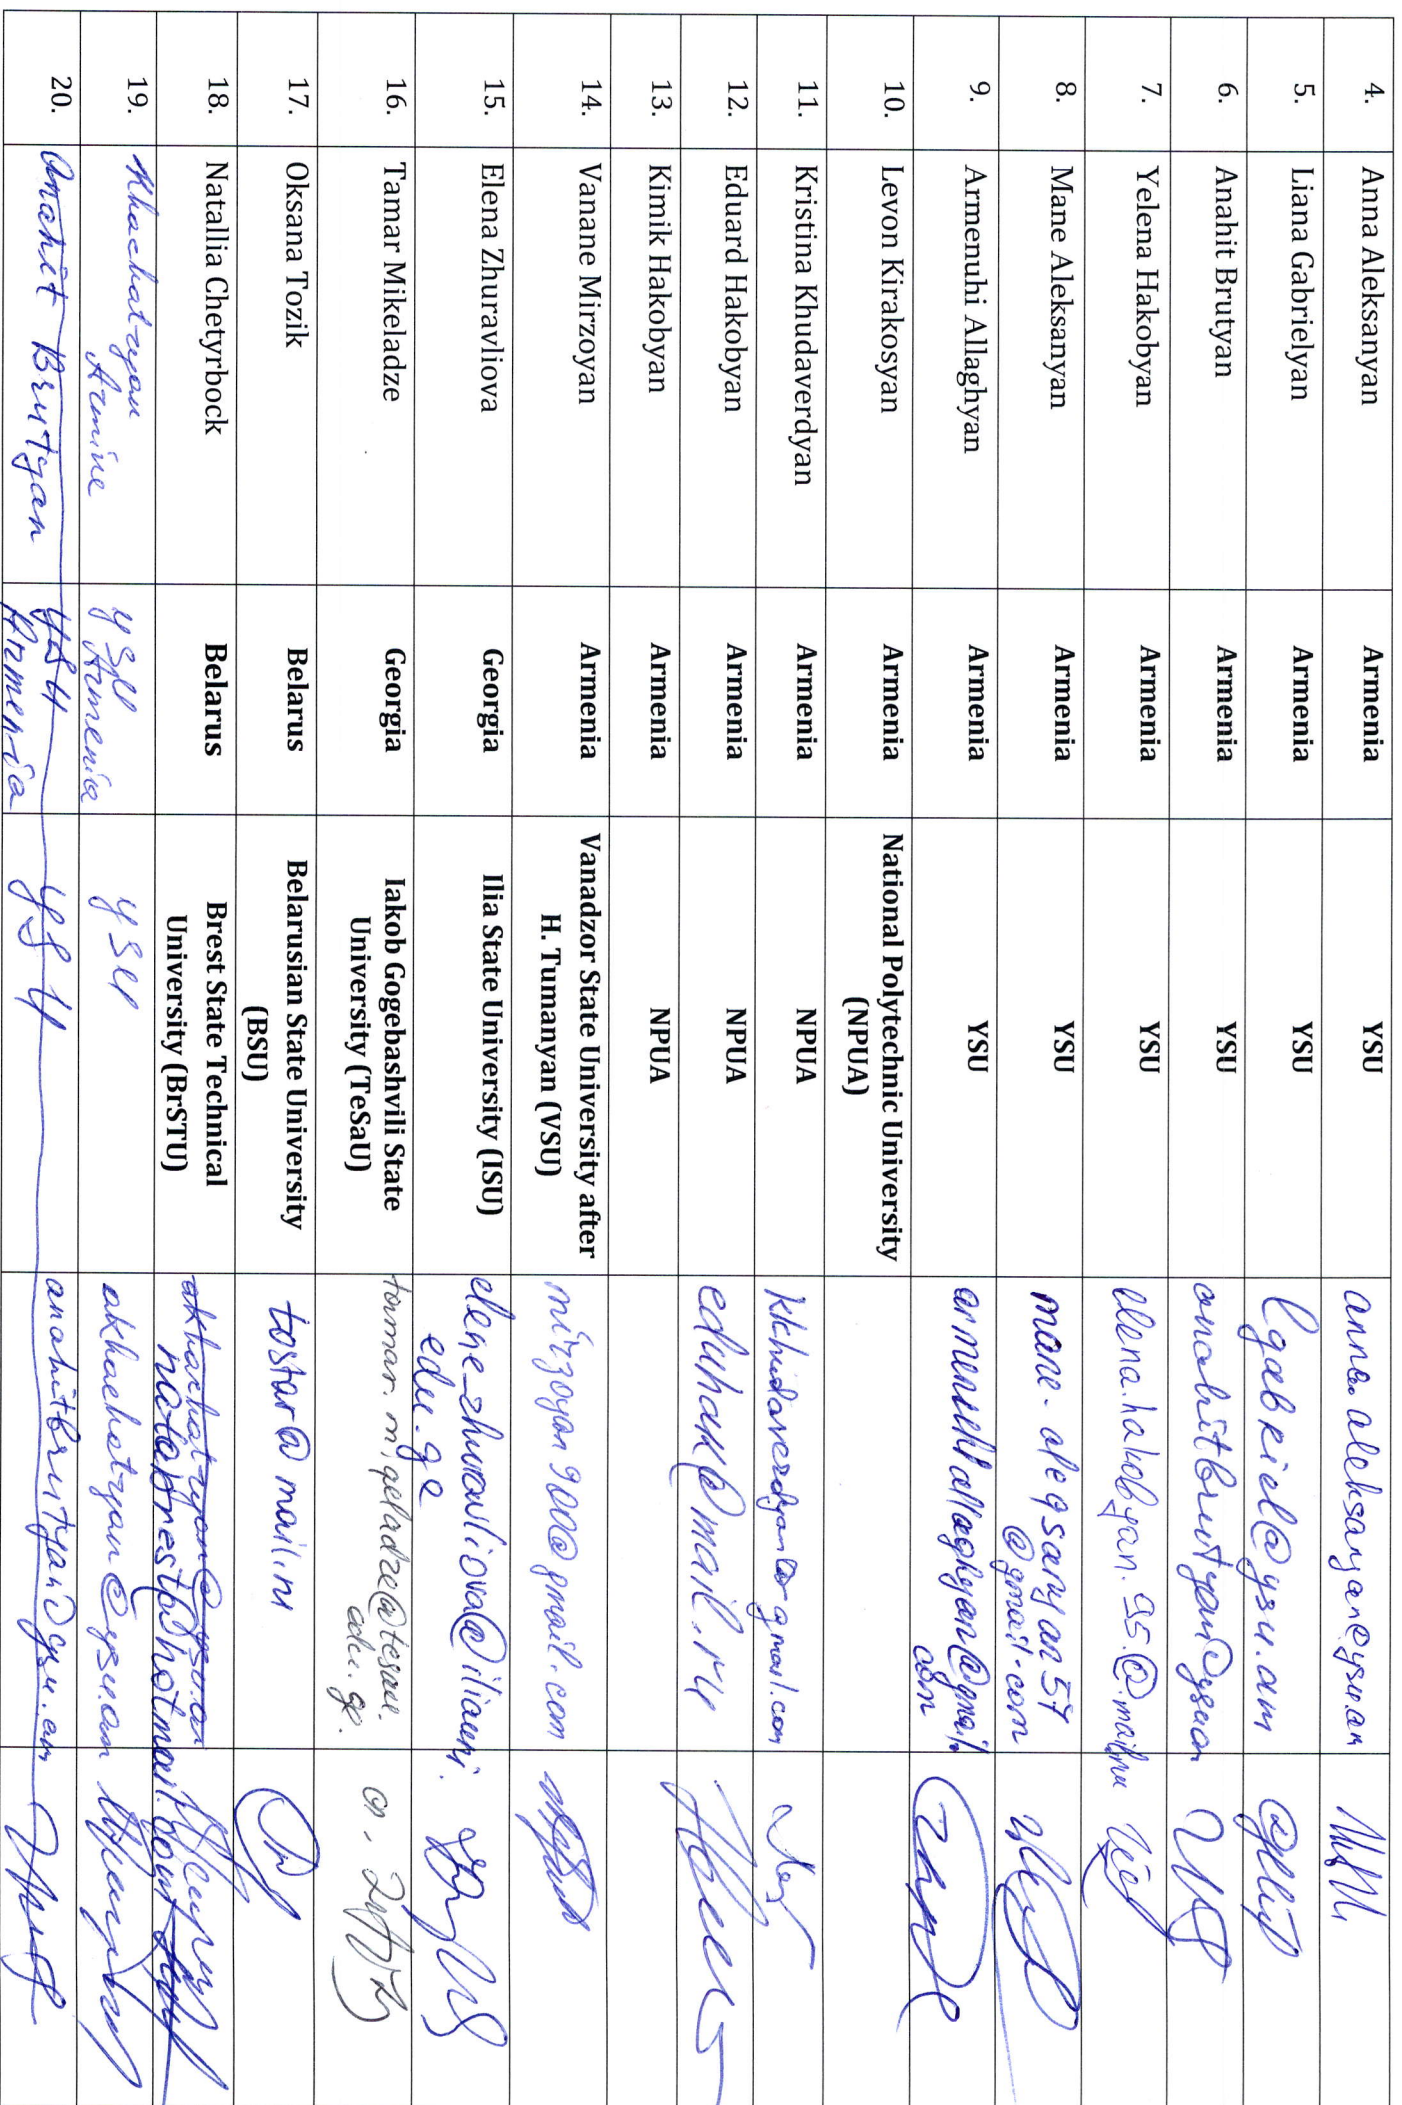 4. Anna Aleksanyan Armenia YSU anna.aleksanyan@ysu.am
5. Liana Gabrielyan Armenia YSU lgabriel@ysu.am
6. Anahit Brutyan Armenia YSU anahitbrutyan@ysu.am
7. Yelena Hakobyan Armenia YSU elena.hakobyan.95.@mail.ru
8. Mane Aleksanyan Armenia YSU mane.aleqsanyan57
@gmail.com
9. Armenuhi Allaghyan Armenia YSU
com
10. Levon Kirakosyan Armenia National Polytechnic University
(NPUA)
11. Kristina Khudaverdyan Armenia NPUA
12. Eduard Hakobyan Armenia NPUA eduhak@mail.ru
13. Kimik Hakobyan Armenia NPUA
14. Vanane Mirzoyan Armenia Vanadzor State University after mirzoyan900@gmail.com
H. Tumanyan (VSU)
15. Elena Zhuravliova Georgia Ilia State University (ISU) elene_zhuravliova@iliauni.
edu.ge
16. Tamar Mikeladze Georgia Iakob Gogebashvili State tamar.miqeladze@tesau.
University (TeSaU) edu.ge.
17. Oksana Tozik Belarus Belarusian State University tostar@mail.ru
(BSU)
18. Natallia Chetyrbock Belarus Brest State Technical akhachatryan@ysu.am
University (BrSTU) natabrest@hotmail.com
19. Khachatryan YSU YSU akhachatryan@ysu.am
Armine Armenia
20. Anahit Brutyan YSU YSU anahitbrutyan@ysu.am
Armenia